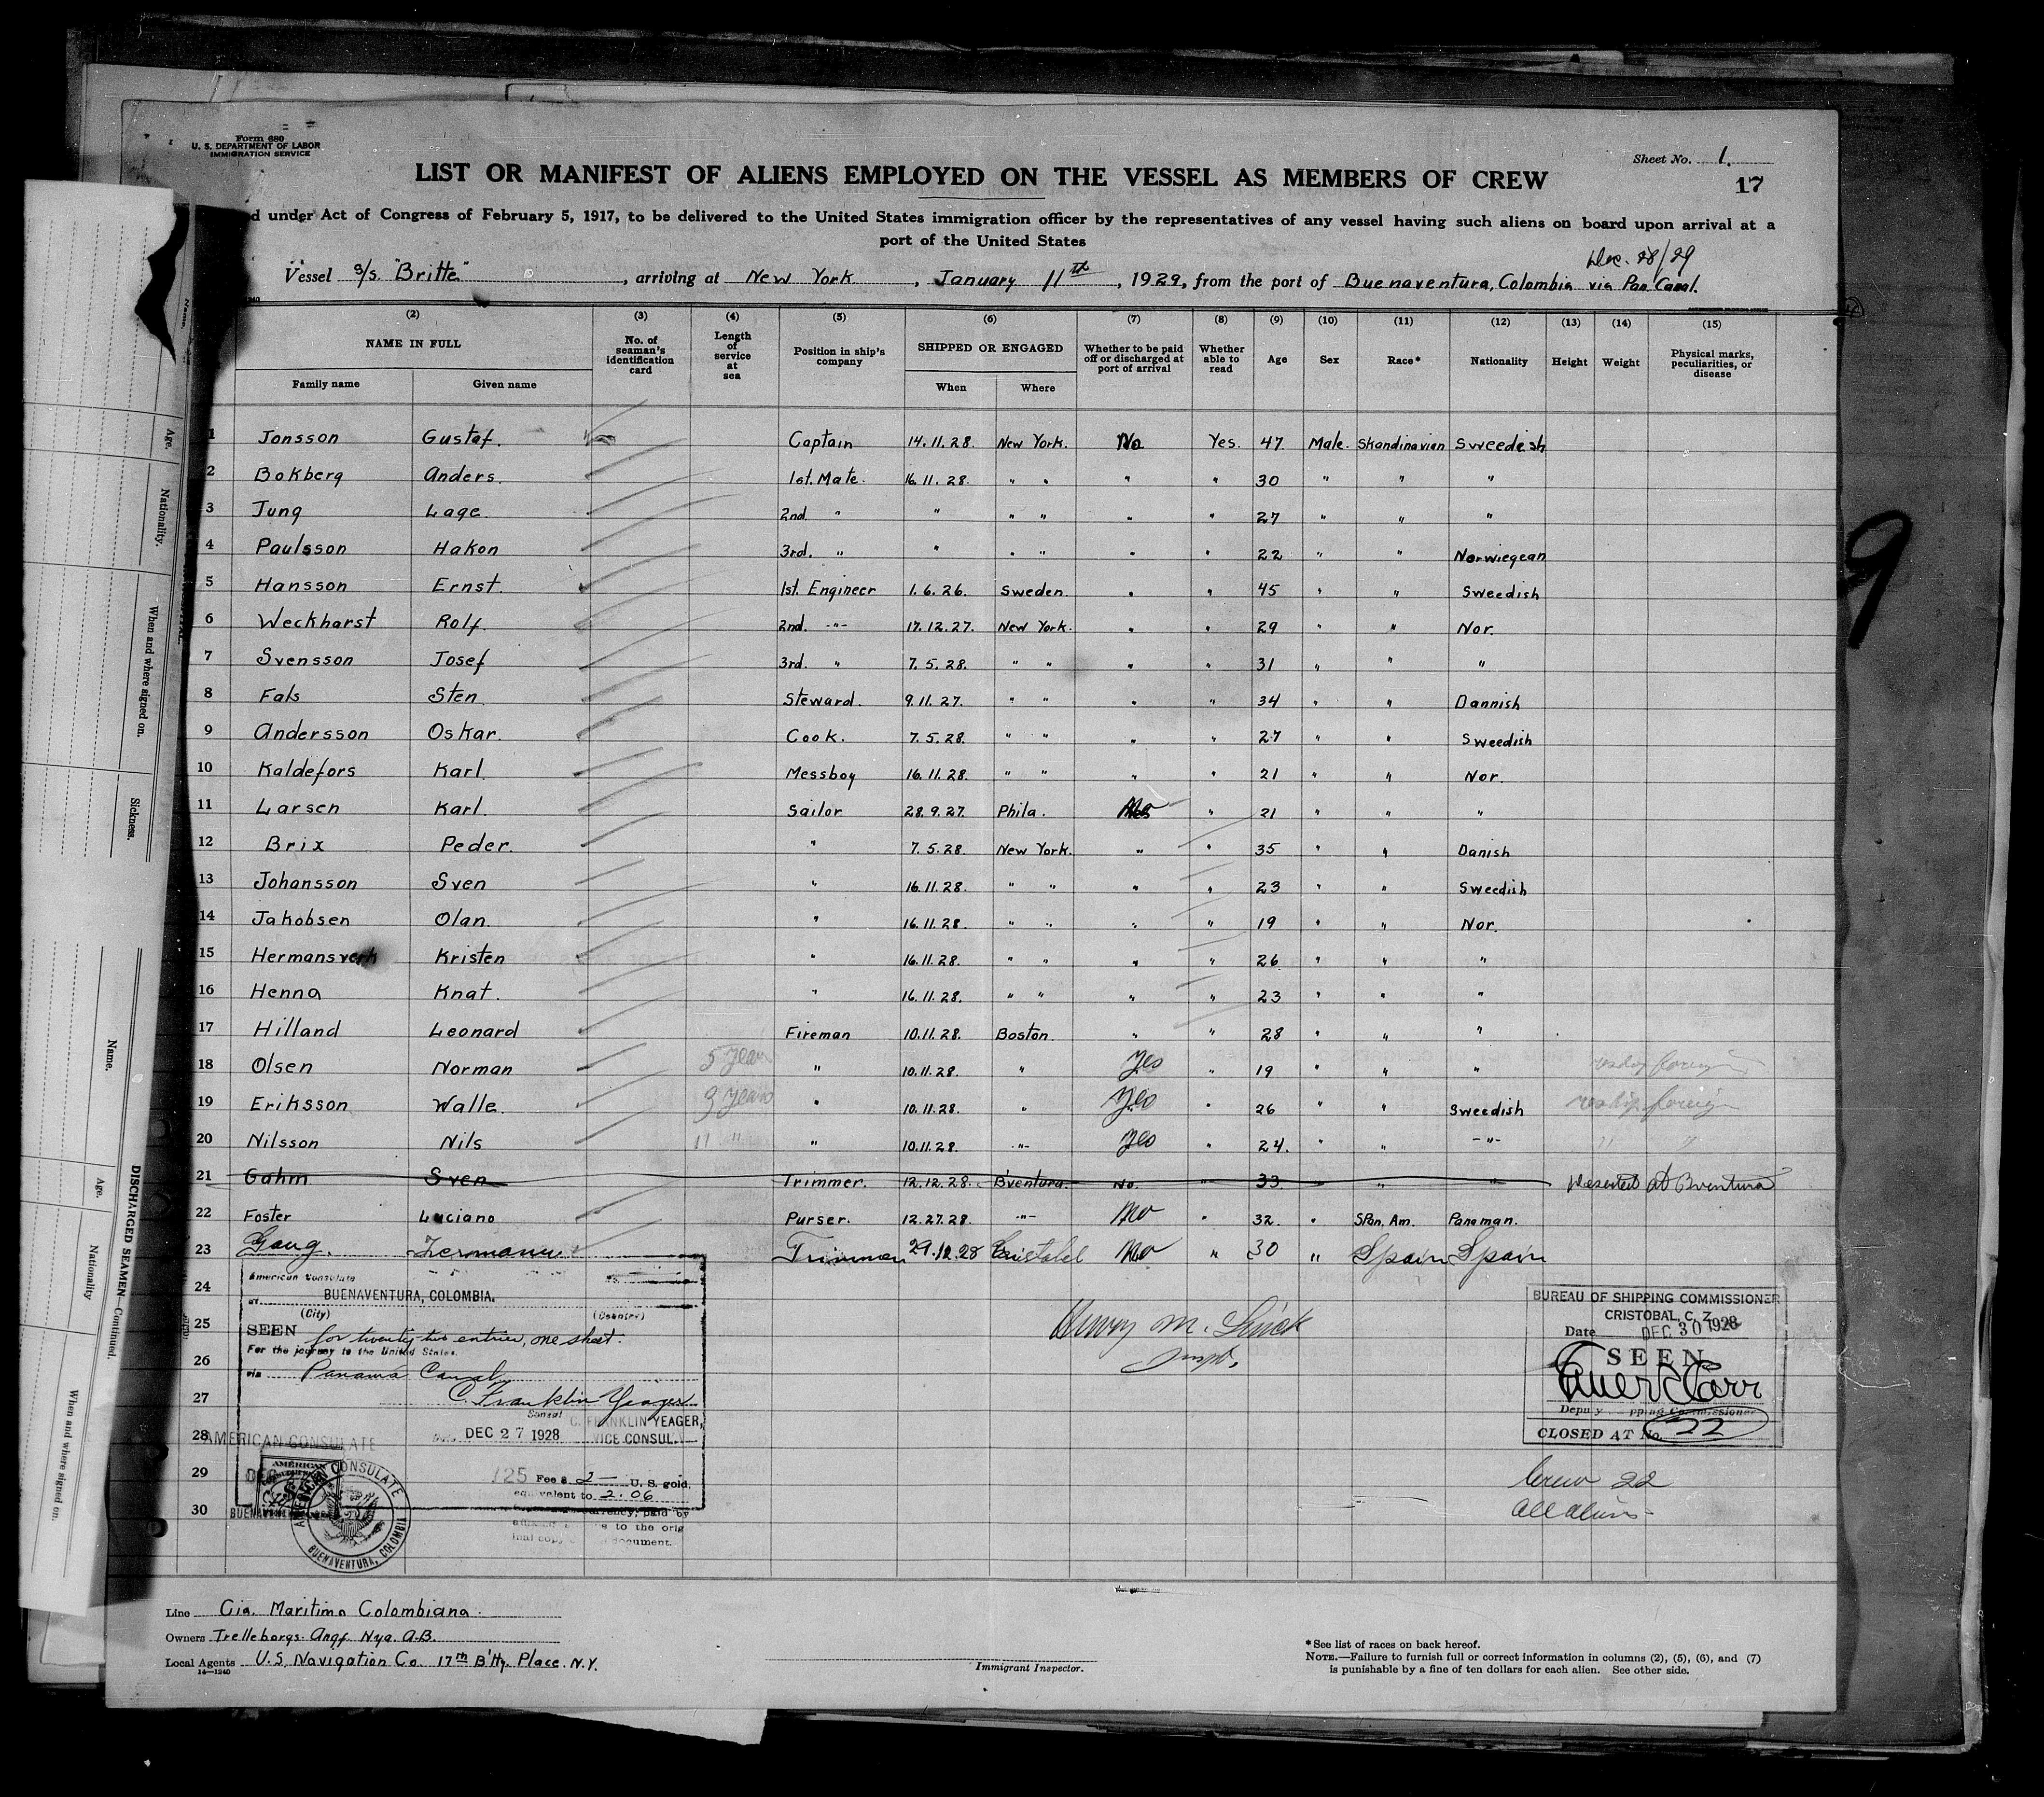 Form 680
U. S. DEPARTMENT OF LABOR
IMMIGRATION SERVICE
Sheet No. 1.
LIST OR MANIFEST OF ALIENS EMPLOYED ON THE VESSEL AS MEMBERS OF CREW
17
d under Act of Congress of February 5, 1917, to be delivered to the United States immigration officer by the representatives of any vessel having such aliens on board upon arrival at a
port of the United States
Dec. 28/29
Vessel S/S. "Britte", arriving at New York, January 11th, 1929, from the port of Buenaventura, Colombia via Pan. Canal.
(2) (3) (4) (5) (6) (7) (8) (9) (10) (11) (12) (13) (14) (15)
NAME IN FULL No. of seaman's identification card Length of service at sea Position in ship's company SHIPPED OR ENGAGED Whether to be paid off or discharged at port of arrival Whether able to read Age Sex Race* Nationality Height Weight Physical marks, peculiarities, or disease
Family name Given name When Where
1 Jonsson Gustaf. Captain 14.11.28. New York. No Yes. 47. Male. Skandinavian Sweedish
2 Bokberg Anders. 1st. Mate. 16.11.28. " " " " 30 " " "
3 Jung Lage. 2nd. " " " " " " 27 " " "
4 Paulsson Hakon 3rd. " " " " " " 22 " " Norwiegean
5 Hansson Ernst. 1st. Engineer 1.6.26. Sweden. " " 45 " " Sweedish
6 Weckharst Rolf. 2nd. -"- 17.12.27. New York. " " 29 " " Nor.
7 Svensson Josef 3rd. " 7.5.28. " " " " 31 " " "
8 Fals Sten. Steward. 9.11.27. " " " " 34 " " Dannish
9 Andersson Oskar. Cook. 7.5.28. " " " " 27 " " Sweedish
10 Kaldefors Karl. Messboy 16.11.28. " " " " 21 " " Nor.
11 Larsen Karl. Sailor 28.9.27. Phila. No " 21 " " "
12 Brix Peder. " 7.5.28. New York. " " 35 " " Danish
13 Johansson Sven " 16.11.28. " " " " 23 " " Sweedish
14 Jakobsen Olan. " 16.11.28. " " " " 19 " " Nor.
15 Hermansverk Kristen " 16.11.28. " " " " 26 " " "
16 Henna Knat. " 16.11.28. " " " " 23 " " "
17 Hilland Leonard Fireman 10.11.28. Boston. " " 28 " " "
18 Olsen Norman 5 years " 10.11.28. " Yes " 19 " " "
19 Eriksson Walle. 3 years " 10.11.28. " Yes " 26 " " Sweedish reship foreign
20 Nilsson Nils 11 " " 10.11.28. -"- Yes " 24. " " -"- " "
21 Gahm Sven Trimmer. 12.12.28. B'ventura. No. " 33. " " Deserted at Bventura
22 Foster Luciano Purser. 12.27.28. -"- No " 32. " Span. Am. Panaman.
23 Trimmer 29.12.28 Cristobal No " 30 " Spain Spain
24
25
26
27
28
29
30
American Consulate
at
BUENAVENTURA, COLOMBIA.
(City) (Country)
SEEN for twenty two entries, one sheet.
For the journey to the United States.
via Panama Canal
C. Franklin Yeager
Consul C. FRANKLIN YEAGER,
DEC 27 1928 VICE CONSUL.
AMERICAN CONSULATE
125 Fee $ 2 — U. S. gold,
equivalent to 2.06
currency, paid by
to the orig
inal copy document.
AMERICAN CONSULATE
BUENAVENTURA, COLOMBIA
Henry M.
Insp.
BUREAU OF SHIPPING COMMISSIONER
CRISTOBAL, C. Z.
Date DEC 30 1928
SEEN
Deputy Shipping Commissioner
CLOSED AT No. 22
Crew 22
all aliens
Line Cia. Maritima Colombiana.
Owners Trelleborgs Angf. Nya. A.B.
Local Agents U.S. Navigation Co. 17th B'tty. Place. N.Y.
14—1240
Immigrant Inspector.
*See list of races on back hereof.
NOTE.—Failure to furnish full or correct information in columns (2), (5), (6), and (7)
is punishable by a fine of ten dollars for each alien. See other side.
9
Name.
Age.
Nationality.
When and where signed on.
Sickness.
DISCHARGED SEAMEN—Continued.
Name.
Age.
Nationality
When and where signed on.